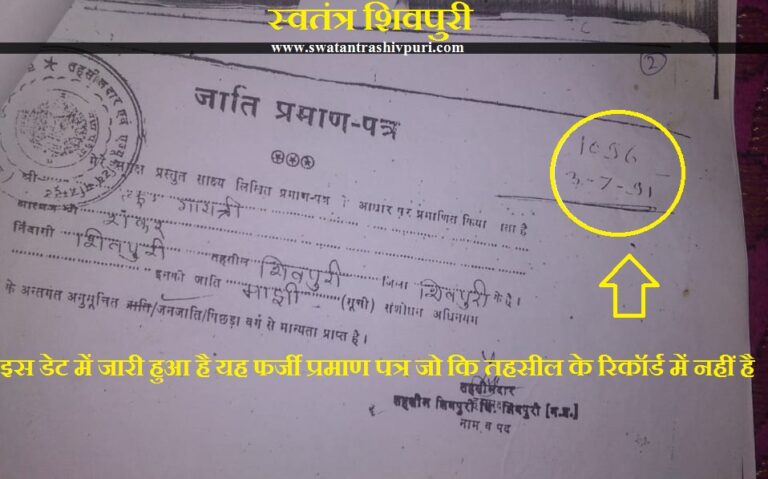 स्वतंत्र शिवपुरी
www.swatantrashivpuri.com
2
जाति प्रमाण-पत्र
1056
3-7-91
प्रस्तुत साक्ष्य लिखित प्रमाण-पत्र आधार पर प्रमाणित किया जाता है
श्री गायत्री
शंकर
निवासी शिवपुरी तहसील शिवपुरी जिला शिवपुरी के है।
इनकी जाति माझी (सूची) संशोधन अधिनयम
के अन्तगत अनुसूचित जाति/जनजाति/पिछड़ा वर्ग से मान्यता प्राप्त है।
इस डेट में जारी हुआ है यह फर्जी प्रमाण पत्र जो कि तहसील के रिकॉर्ड में नहीं है
तहसीलदार
तहसील शिवपुरी जि. शिवपुरी [म.प्र.]
नाम व पद